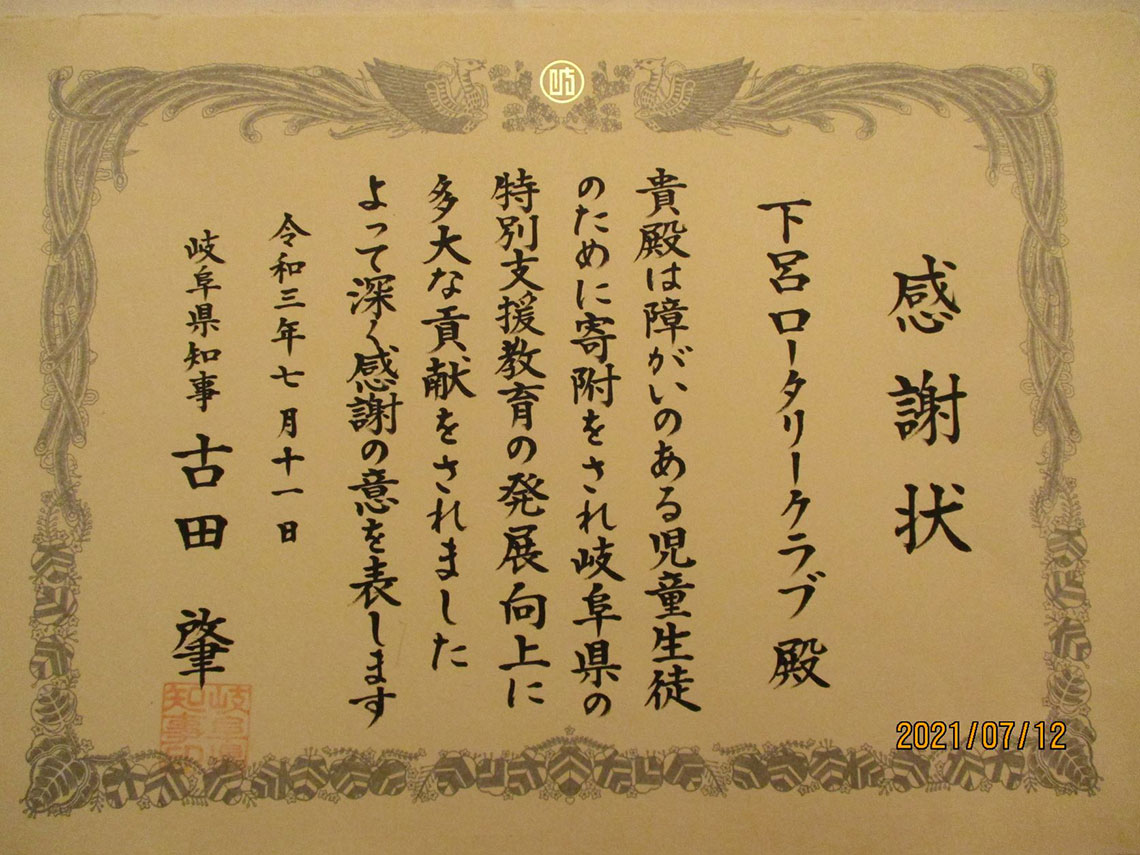 岐
感謝状
下呂ロータリークラブ殿
貴殿は障がいのある児童生徒
のために寄附をされ岐阜県の
特別支援教育の発展向上に
多大な貢献をされました
よって深く感謝の意を表します
令和三年七月十一日
岐阜県知事 古田 肇
岐阜県
知事印
2021/07/12